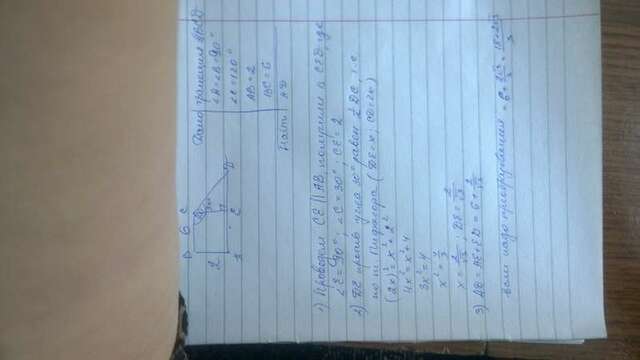 Дано: трапеция ABCD
∠A=∠B=90°
∠C=120°
AB=2
BC=6
Найти: AD
B 6 C
2
30°
1) Проводим CE || AB, получили △ CED, где
∠E=90°, ∠C=30°, CE=2
2) DE против угла 30° равен ½ DC, т.е.
по т. Пифагора (DE=x, CD=2x)
(2x)²=x²+2²
4x²=x²+4
3x²=4
x²=4/3
x=2/√3, DE=2/√3
3) AD=AE+ED=6+2/√3
если надо преобразования =6+2√3/3=18+2√3/3